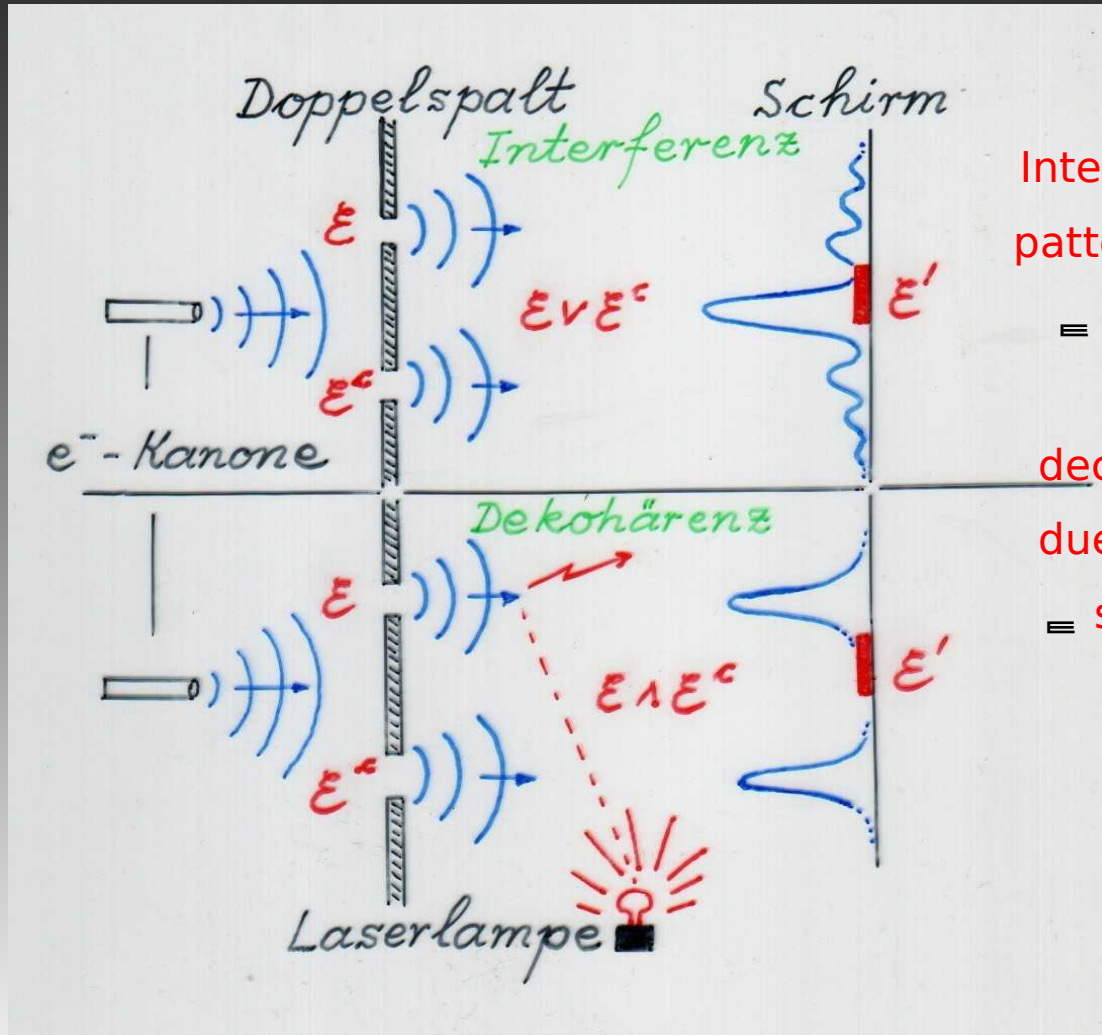 Doppelspalt
Schirm
Interferenz
ℰ
ℰ ∨ ℰᶜ
ℰ'
ℰᶜ
e⁻-Kanone
Dekohärenz
ℰ
ℰ ∧ ℰᶜ
ℰ'
ℰᶜ
Laserlampe
Inte
patte
≡
dec
due
≡ s